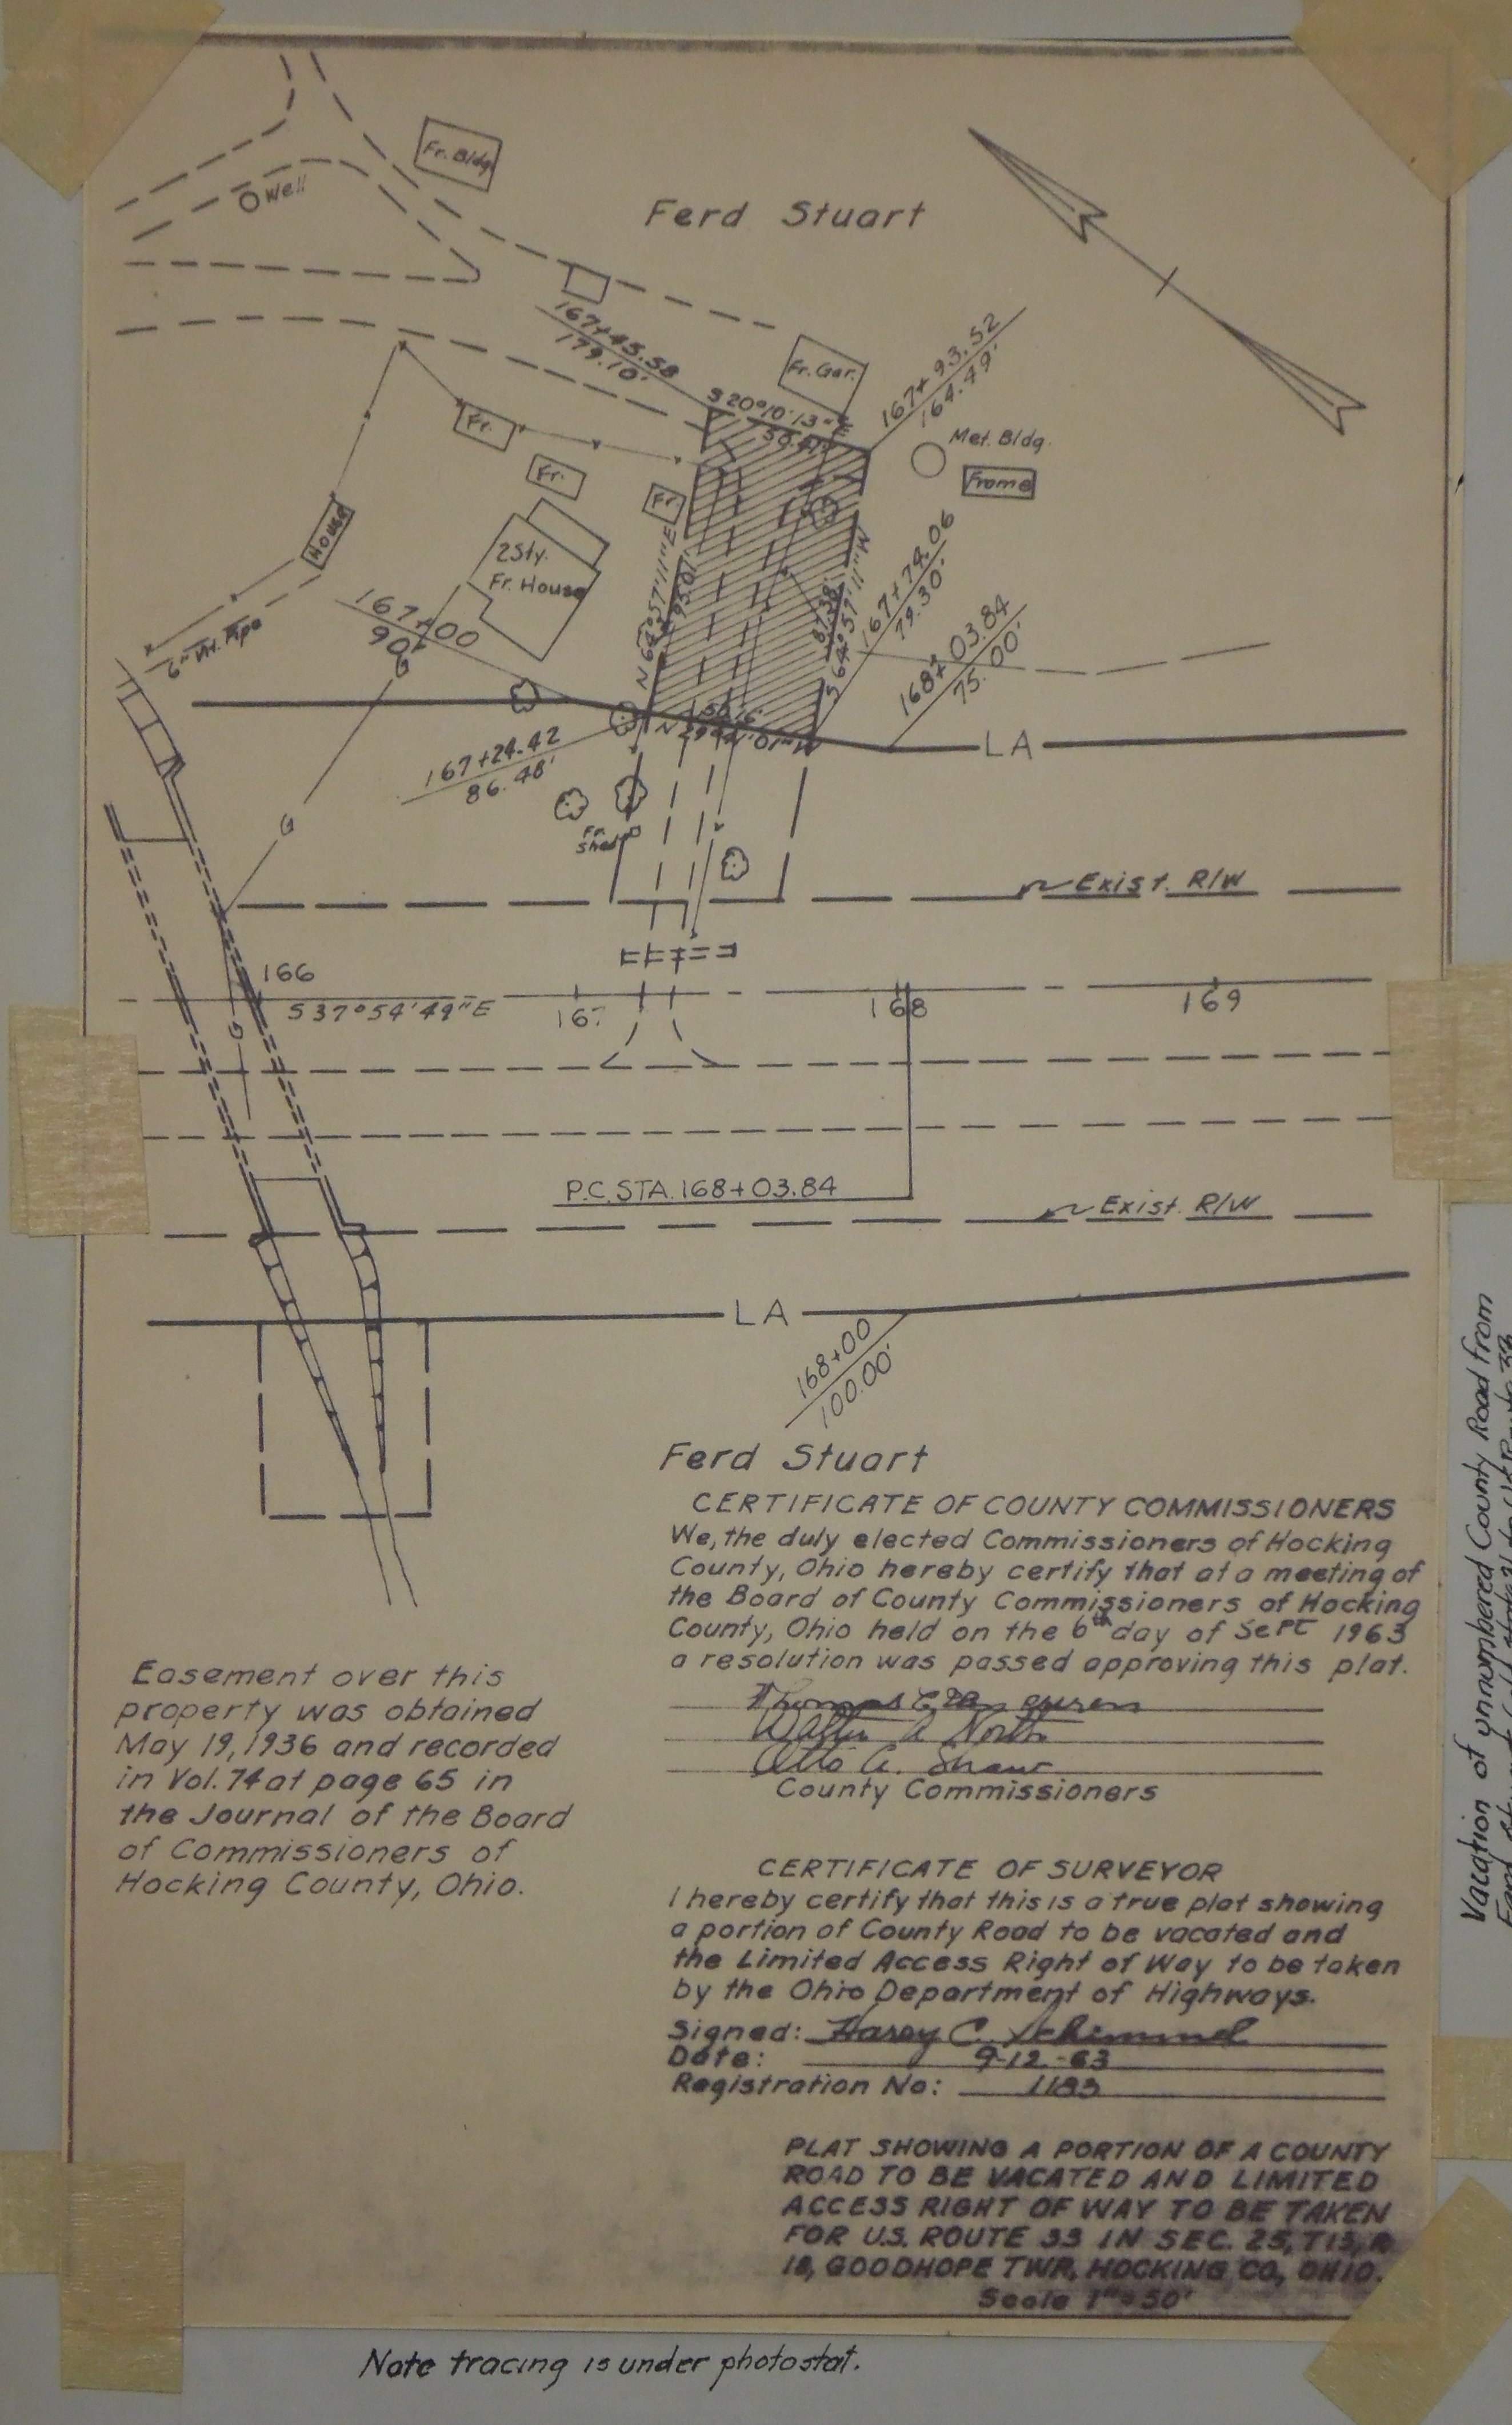 Fr. Bldg.
Well
Ferd Stuart
167+45.58
179.10'
Fr. Gar.
167+93.52
164.49'
S 20°10'13"E
Fr.
Met. Bldg.
Frame
Fr.
Fr.
House
2 Sty.
Fr. House
N 64°57'11"E
95.01'
87.38'
S 64°57'11"W
167+74.06
79.30'
167+00
90'
6" Vit. Pipe
G
168+03.84
75.00'
50.16'
LA
167+24.42
86.48'
G
Fr.
Shed
Exist. R/W
166
S 37°54'49"E
167
168
169
G
P.C. STA. 168+03.84
Exist. R/W
LA
168+00
100.00'
Ferd Stuart
CERTIFICATE OF COUNTY COMMISSIONERS
We, the duly elected Commissioners of Hocking
County, Ohio hereby certify that at a meeting of
the Board of County Commissioners of Hocking
County, Ohio held on the 6th day of Sept 1963
a resolution was passed approving this plat.
Walter A North
Otto A. Shaw
County Commissioners
Easement over this
property was obtained
May 19, 1936 and recorded
in Vol. 74 at page 65 in
the Journal of the Board
of Commissioners of
Hocking County, Ohio.
CERTIFICATE OF SURVEYOR
I hereby certify that this is a true plat showing
a portion of County Road to be vacated and
the Limited Access Right of Way to be taken
by the Ohio Department of Highways.
Signed: Harry C. Schimmel
Date: 9-12-63
Registration No:
PLAT SHOWING A PORTION OF A COUNTY
ROAD TO BE VACATED AND LIMITED
ACCESS RIGHT OF WAY TO BE TAKEN
FOR U.S. ROUTE 33 IN SEC. 25, T13, R
18, GOODHOPE TWP., HOCKING CO., OHIO.
Scale 1"=50'
Note tracing is under photostat.
Vacation of unnumbered County Road from